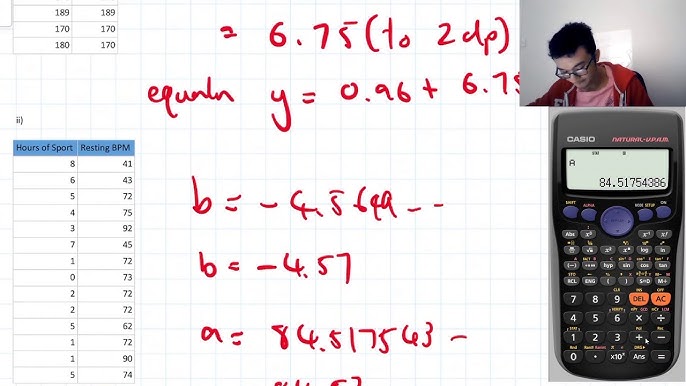 189 189
170 170
180 170
= 6.75 (to 2 dp)
y = 0.96 + 6.7
ii)
Hours of Sport Resting BPM
8 41
6 43
5 72
4 75
3 92
7 45
1 72
0 73
2 72
2 72
5 62
1 72
1 90
5 74
b = -4.5649 --
b = -4.57
a = 84.517543 -
CASIO NATURAL-V.P.A.M.
A
84.51754386
SHIFT ALPHA MODE SETUP ON
Abs x³ x⁻¹ log
(−) hyp sin cos tan
RCL ENG ( ) S⇔D M+
7 8 9 DEL AC
4 5 6 × ÷
1 2 3 + −
0 · ×10ˣ Ans =